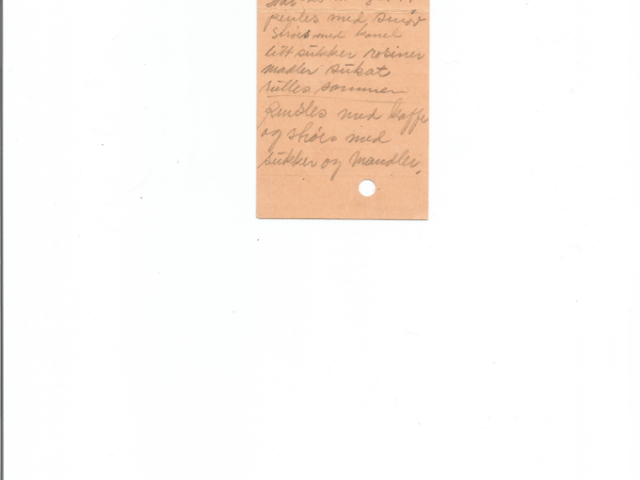 penles med smør
strøs med kanel
litt sukker rosiner
madler sukat
rulles sammen
Pensles med kaffe
og strøes med
sukker og mandler.